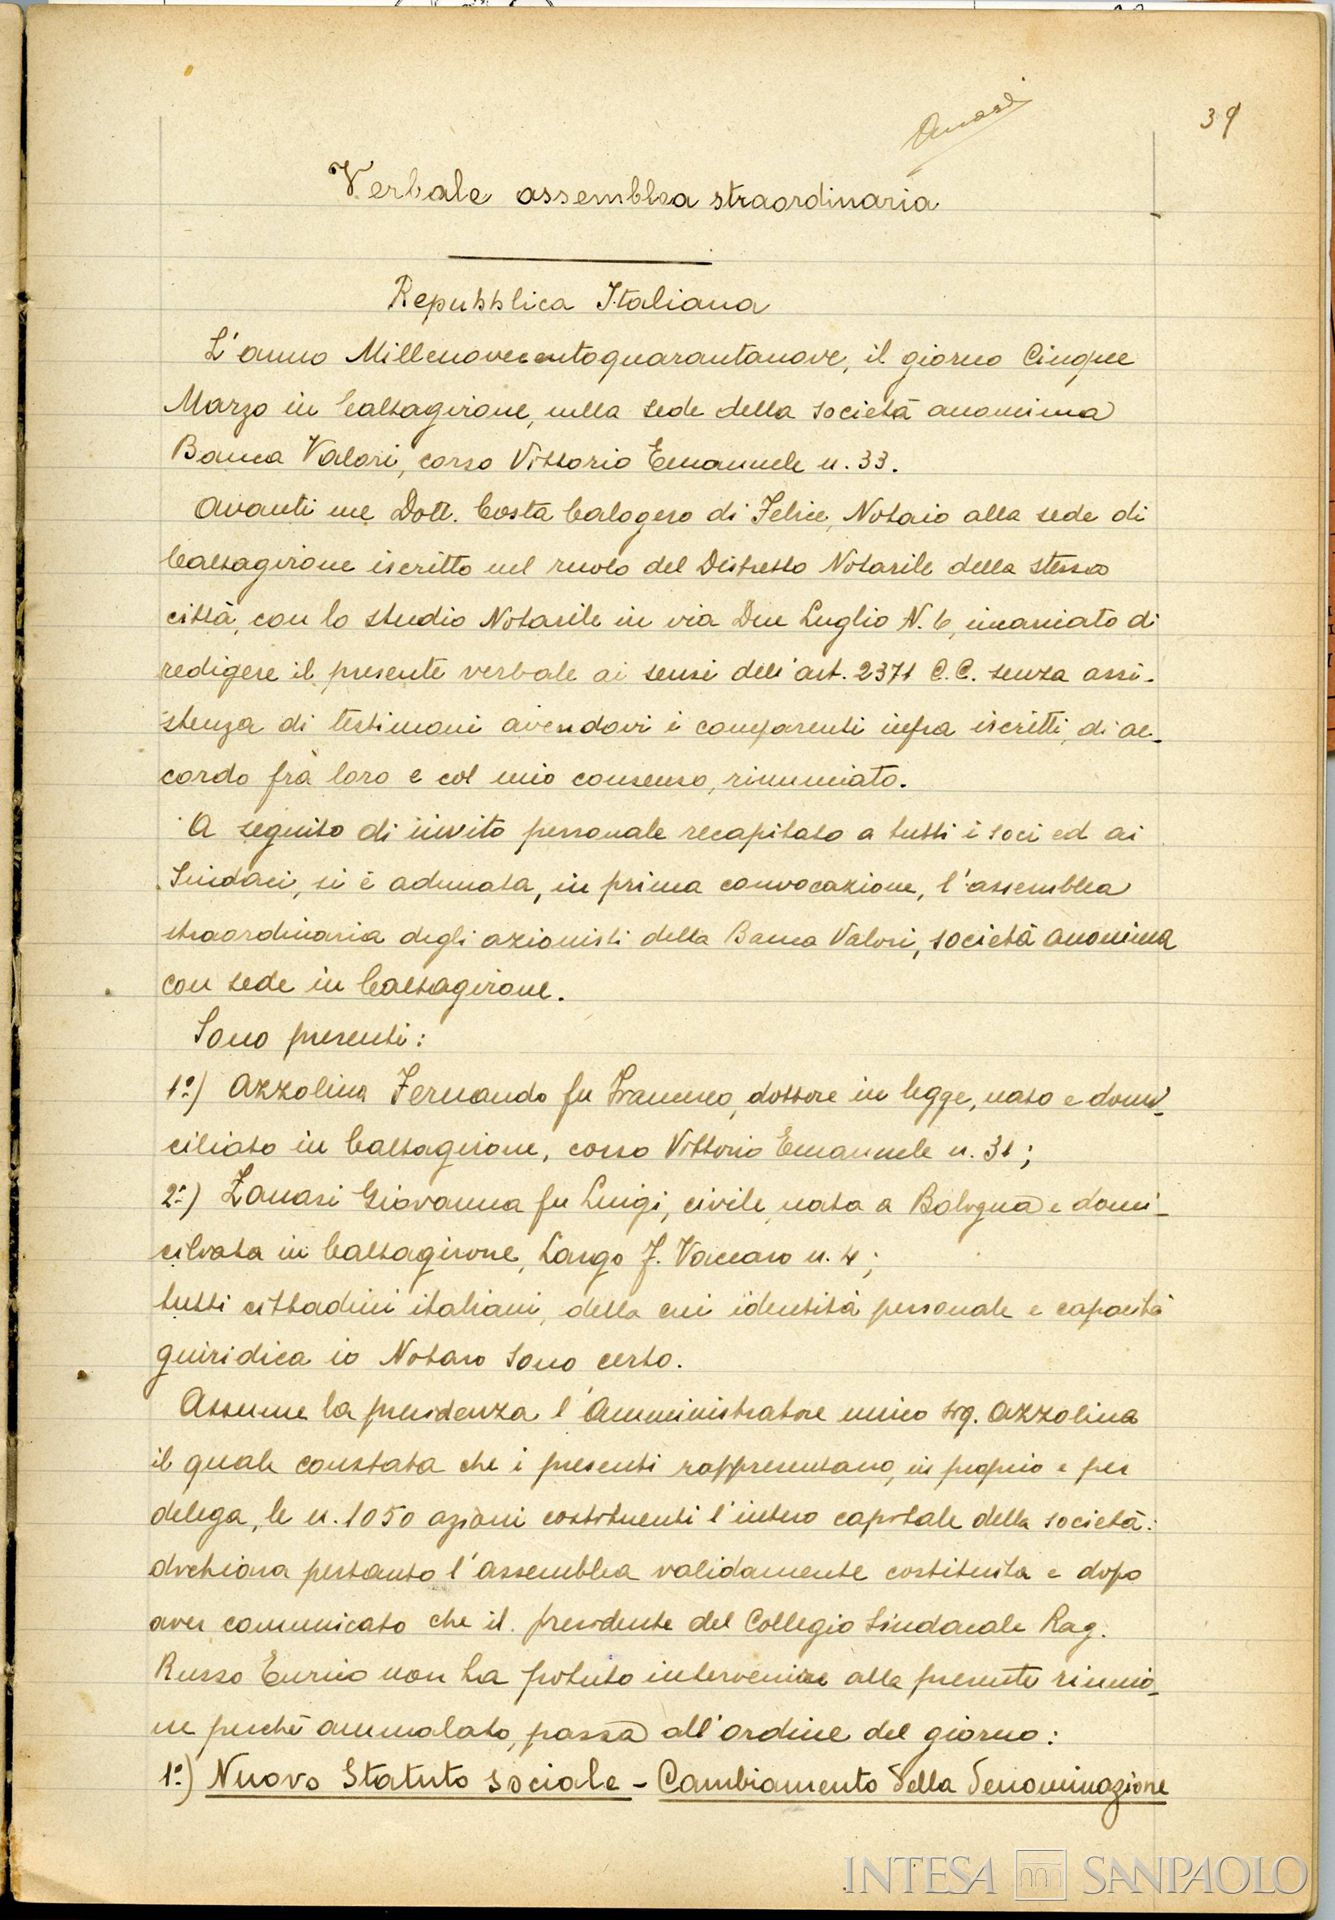 39
Verbale assemblea straordinaria
Repubblica Italiana
L'anno Millenovecentoquarantanove, il giorno Cinque
Marzo in Caltagirone, nella sede della società anonima
Banca Valori, corso Vittorio Emanuele n. 33.
Avanti me Dott. Costa Calogero di Felice, Notaio alla sede di
Caltagirone iscritto nel ruolo del Distretto Notarile della stessa
città, con lo studio Notarile in via Due Luglio N. 6, incaricato di
redigere il presente verbale ai sensi dell'art. 2371 C.C. senza assi-
stenza di testimoni avendovi i comparenti infra iscritti, di ac-
cordo frà loro e col mio consenso, rinunciato.
A seguito di invito personale recapitato a tutti i soci ed ai
Sindaci, si è adunata, in prima convocazione, l'assemblea
straordinaria degli azionisti della Banca Valori, società anonima
con sede in Caltagirone.
Sono presenti:
1°) Azzolina Fernando fu Francesco, dottore in legge, nato e domi-
ciliato in Caltagirone, corso Vittorio Emanuele n. 31;
2°) Zanasi Giovanna fu Luigi, civile, nata a Bologna e domi-
ciliata in Caltagirone, Largo F. Vaccaro n. 4;
tutti cittadini italiani, della cui identità personale e capacità
giuridica io Notaro sono certo.
Assume la presidenza l'Amministratore unico sig. Azzolina
il quale constata che i presenti rappresentano, in proprio e per
delega, le n. 1050 azioni costituenti l'intero capitale della società:
dichiara pertanto l'assemblea validamente costituita e dopo
aver comunicato che il presidente del Collegio Sindacale Rag.
Russo Enrico non ha potuto intervenire alla presente riunio-
ne perchè ammalato, passa all'ordine del giorno:
1°) Nuovo Statuto Sociale - Cambiamento della denominazione
INTESA SANPAOLO